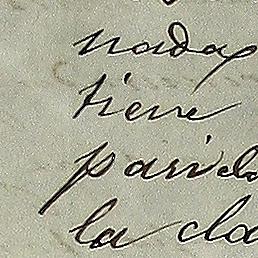 nada
tiene
parida
la cla